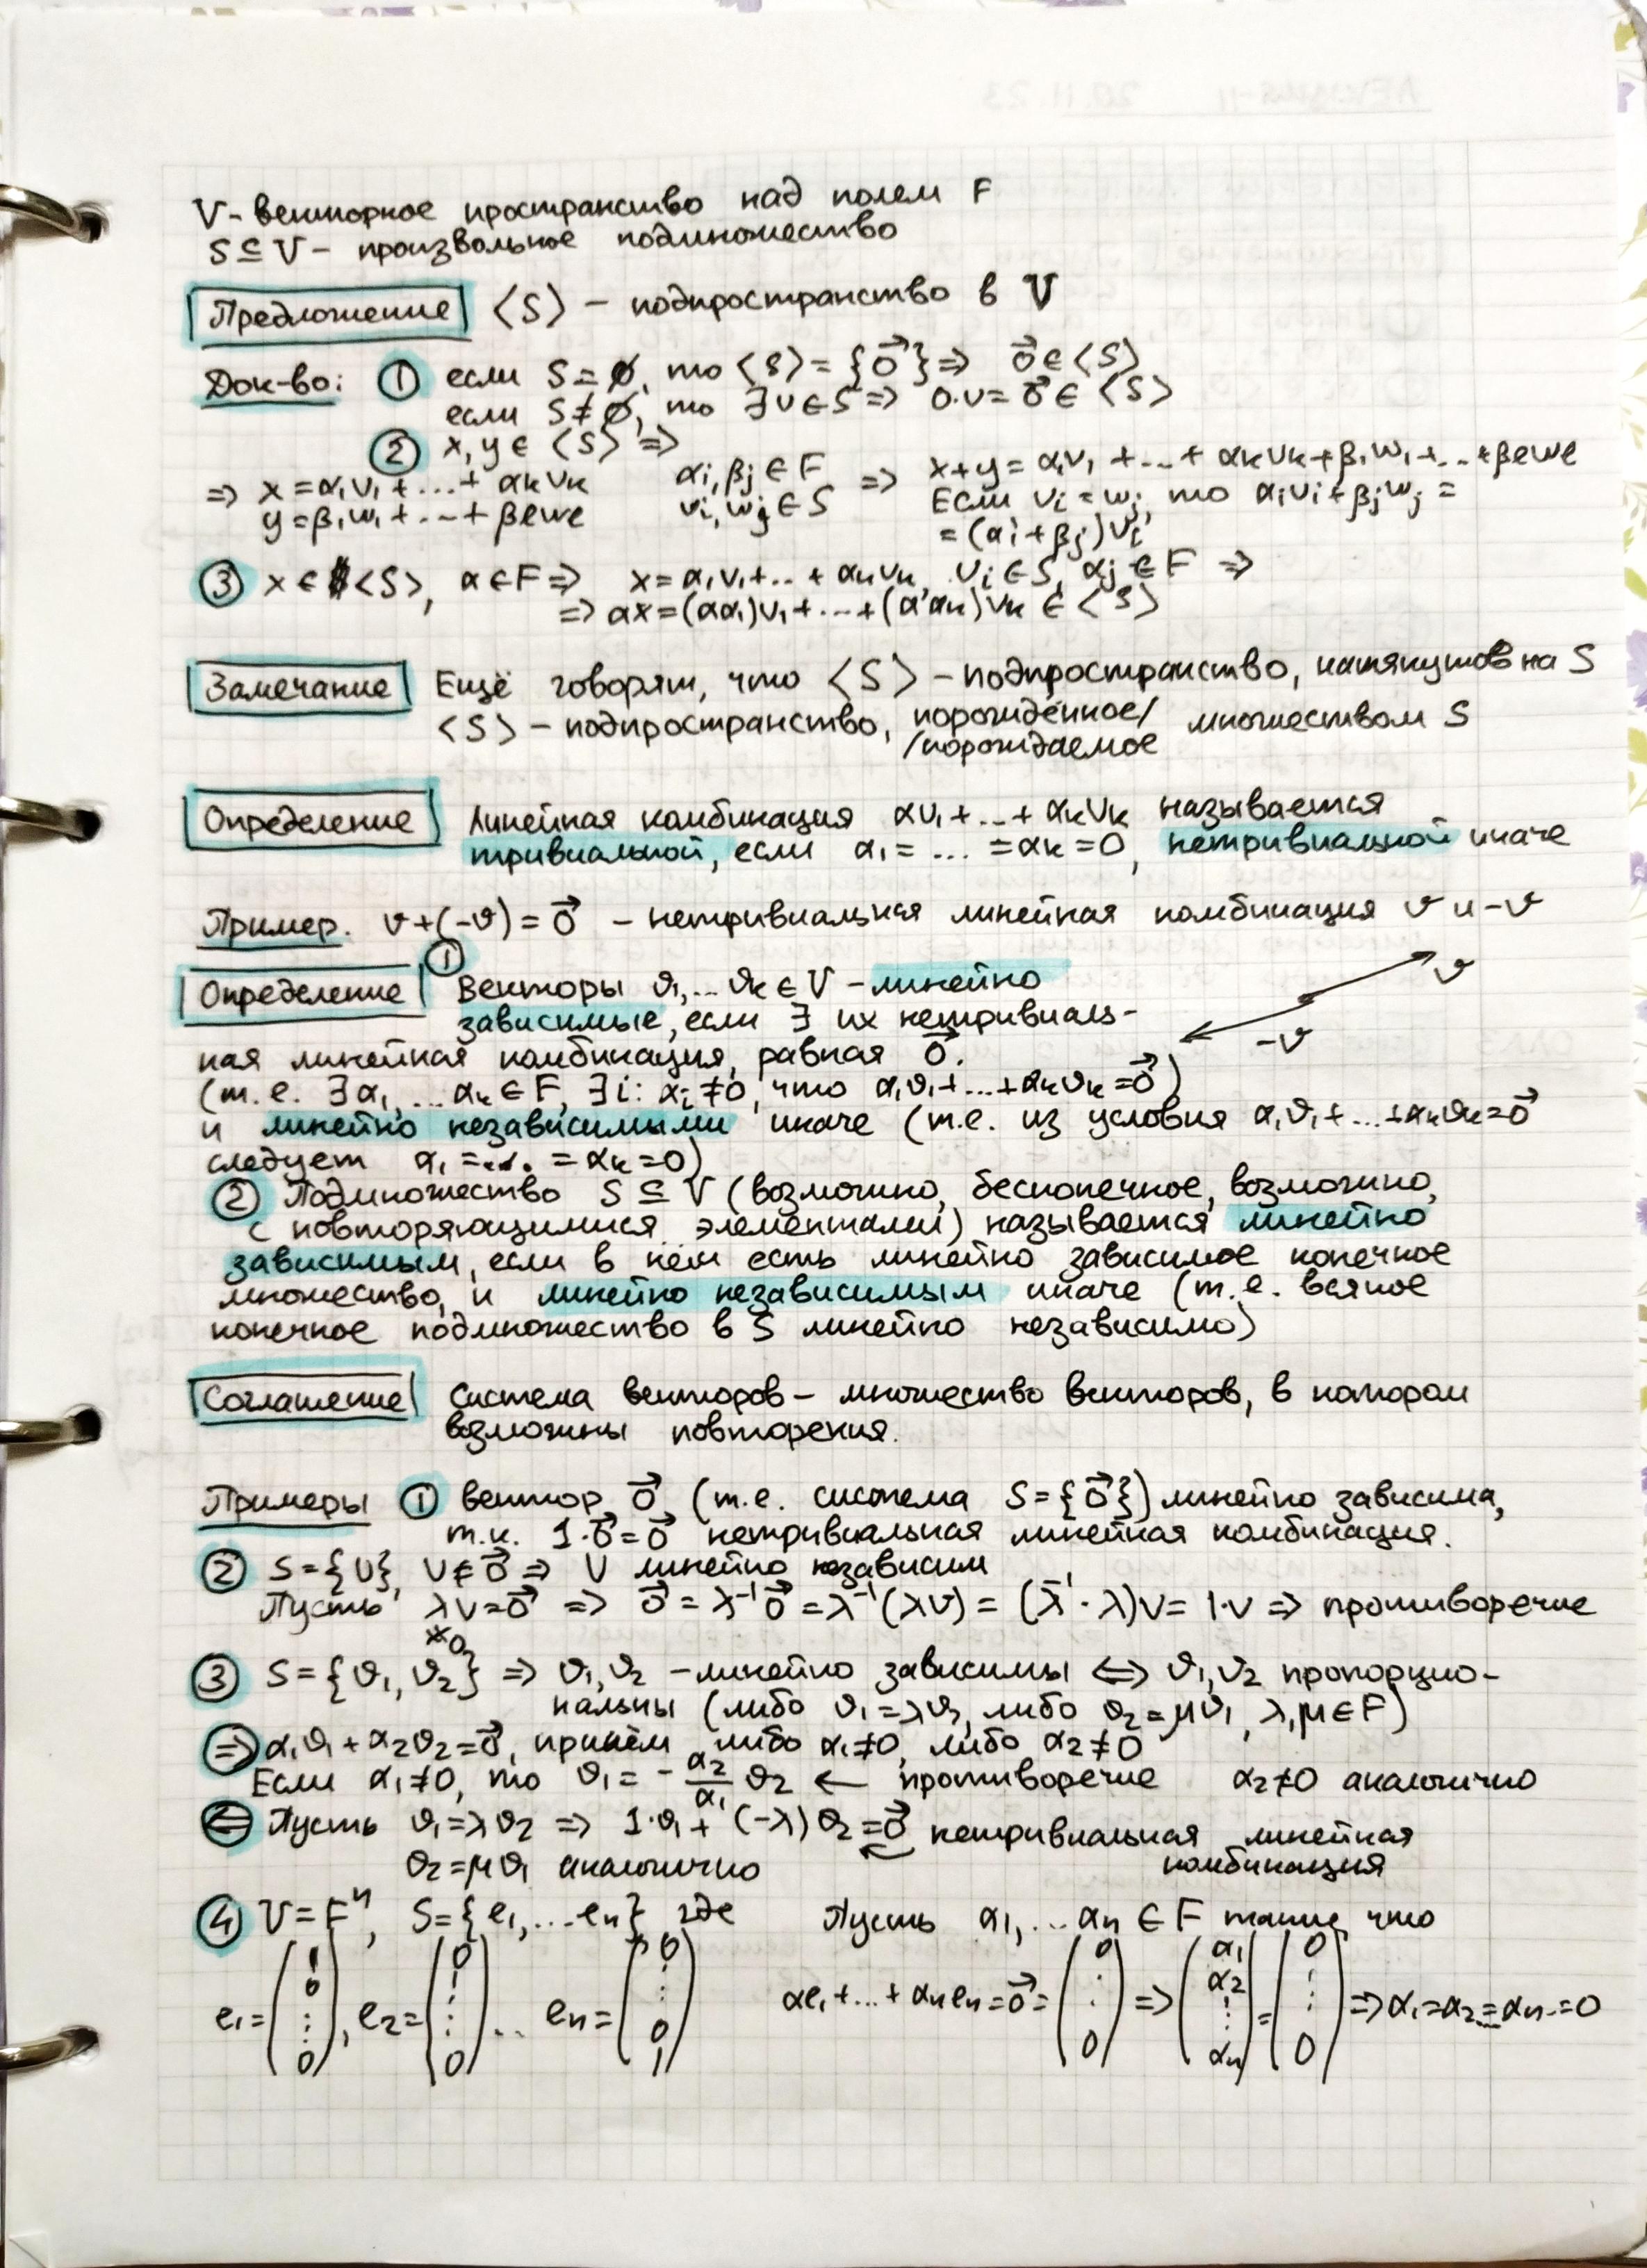 V - векторное пространство над полем F
S ⊆ V - произвольное подмножество
Предложение ⟨S⟩ - подпространство в V
Док-во: ① если S = ∅, то ⟨S⟩ = {0⃗} ⇒ 0⃗ ∈ ⟨S⟩
если S ≠ ∅, то ∃ v ∈ S ⇒ 0·v = 0⃗ ∈ ⟨S⟩
② x, y ∈ ⟨S⟩ ⇒
⇒ x = α₁v₁ + ... + αₖvₖ αᵢ, βⱼ ∈ F ⇒ x+y = α₁v₁ + ... + αₖvₖ + β₁w₁ + ... + βₗwₗ
y = β₁w₁ + ... + βₗwₗ vᵢ, wⱼ ∈ S Если vᵢ = wⱼ, то αᵢvᵢ + βⱼwⱼ =
= (αᵢ + βⱼ)vᵢ
③ x ∈ ⟨S⟩, α ∈ F ⇒ x = α₁v₁ + .. + αₖvₖ, vᵢ ∈ S, αⱼ ∈ F ⇒
⇒ αx = (αα₁)v₁ + ... + (ααₖ)vₖ ∈ ⟨S⟩
Замечание Ещё говорят, что ⟨S⟩ - подпространство, натянутов на S
⟨S⟩ - подпространство, порождённое/ множеством S
/порождаемое
Определение Линейная комбинация αv₁ + ... + αₖvₖ называется
тривиальной, если α₁ = ... = αₖ = 0, нетривиальной иначе
Пример. v + (-v) = 0⃗ - нетривиальная линейная комбинация v и -v
Определение ① Векторы v₁, ... vₖ ∈ V - линейно
v
зависимые, если ∃ их нетривиаль-
-v
ная линейная комбинация, равная 0⃗.
(т.е. ∃ α₁, ... αₖ ∈ F, ∃ i: αᵢ ≠ 0, что α₁v₁ + ... + αₖvₖ = 0⃗)
и линейно независимыми иначе (т.е. из условия α₁v₁ + ... + αₖvₖ = 0⃗
следует α₁ = ... = αₖ = 0)
② Подмножество S ⊆ V (возможно, бесконечное, возможно,
с повторяющимися элементами) называется линейно
зависимым, если в нём есть линейно зависимое конечное
множество, и линейно независимым иначе (т.е. всякое
конечное подмножество в S линейно независимо)
Соглашение Система векторов - множество векторов, в котором
возможны повторения.
Примеры ① вектор 0⃗ (т.е. система S = {0⃗}) линейно зависима,
т.к. 1·0⃗ = 0⃗ нетривиальная линейная комбинация.
② S = {v}, v ≠ 0⃗ ⇒ v линейно независим
Пусть λv = 0⃗ ⇒ 0⃗ = λ⁻¹0⃗ = λ⁻¹(λv) = (λ⁻¹·λ)v = 1·v ⇒ противоречие
≠0
③ S = {v₁, v₂} ⇒ v₁, v₂ - линейно зависимы ⇔ v₁, v₂ пропорцио-
нальны (либо v₁ = λv₂, либо v₂ = μv₁, λ, μ ∈ F)
⇒ α₁v₁ + α₂v₂ = 0⃗, причём либо α₁ ≠ 0, либо α₂ ≠ 0
Если α₁ ≠ 0, то v₁ = -α₂/α₁ v₂ ← противоречие α₂ ≠ 0 аналогично
⇐ Пусть v₁ = λv₂ ⇒ 1·v₁ + (-λ)v₂ = 0⃗ ← нетривиальная линейная
v₂ = μv₁ аналогично комбинация
④ V = Fⁿ, S = {e₁, ... eₙ}, где Пусть α₁, ... αₙ ∈ F такие, что
e₁ = (1 0 ⋮ 0), e₂ = (0 1 ⋮ 0) ... eₙ = (0 ⋮ 0 1) αe₁ + ... + αₙeₙ = 0⃗ = (0 ⋮ 0) ⇒ (α₁ α₂ ⋮ αₙ) = (0 ⋮ 0) ⇒ α₁ = α₂ = ... αₙ = 0